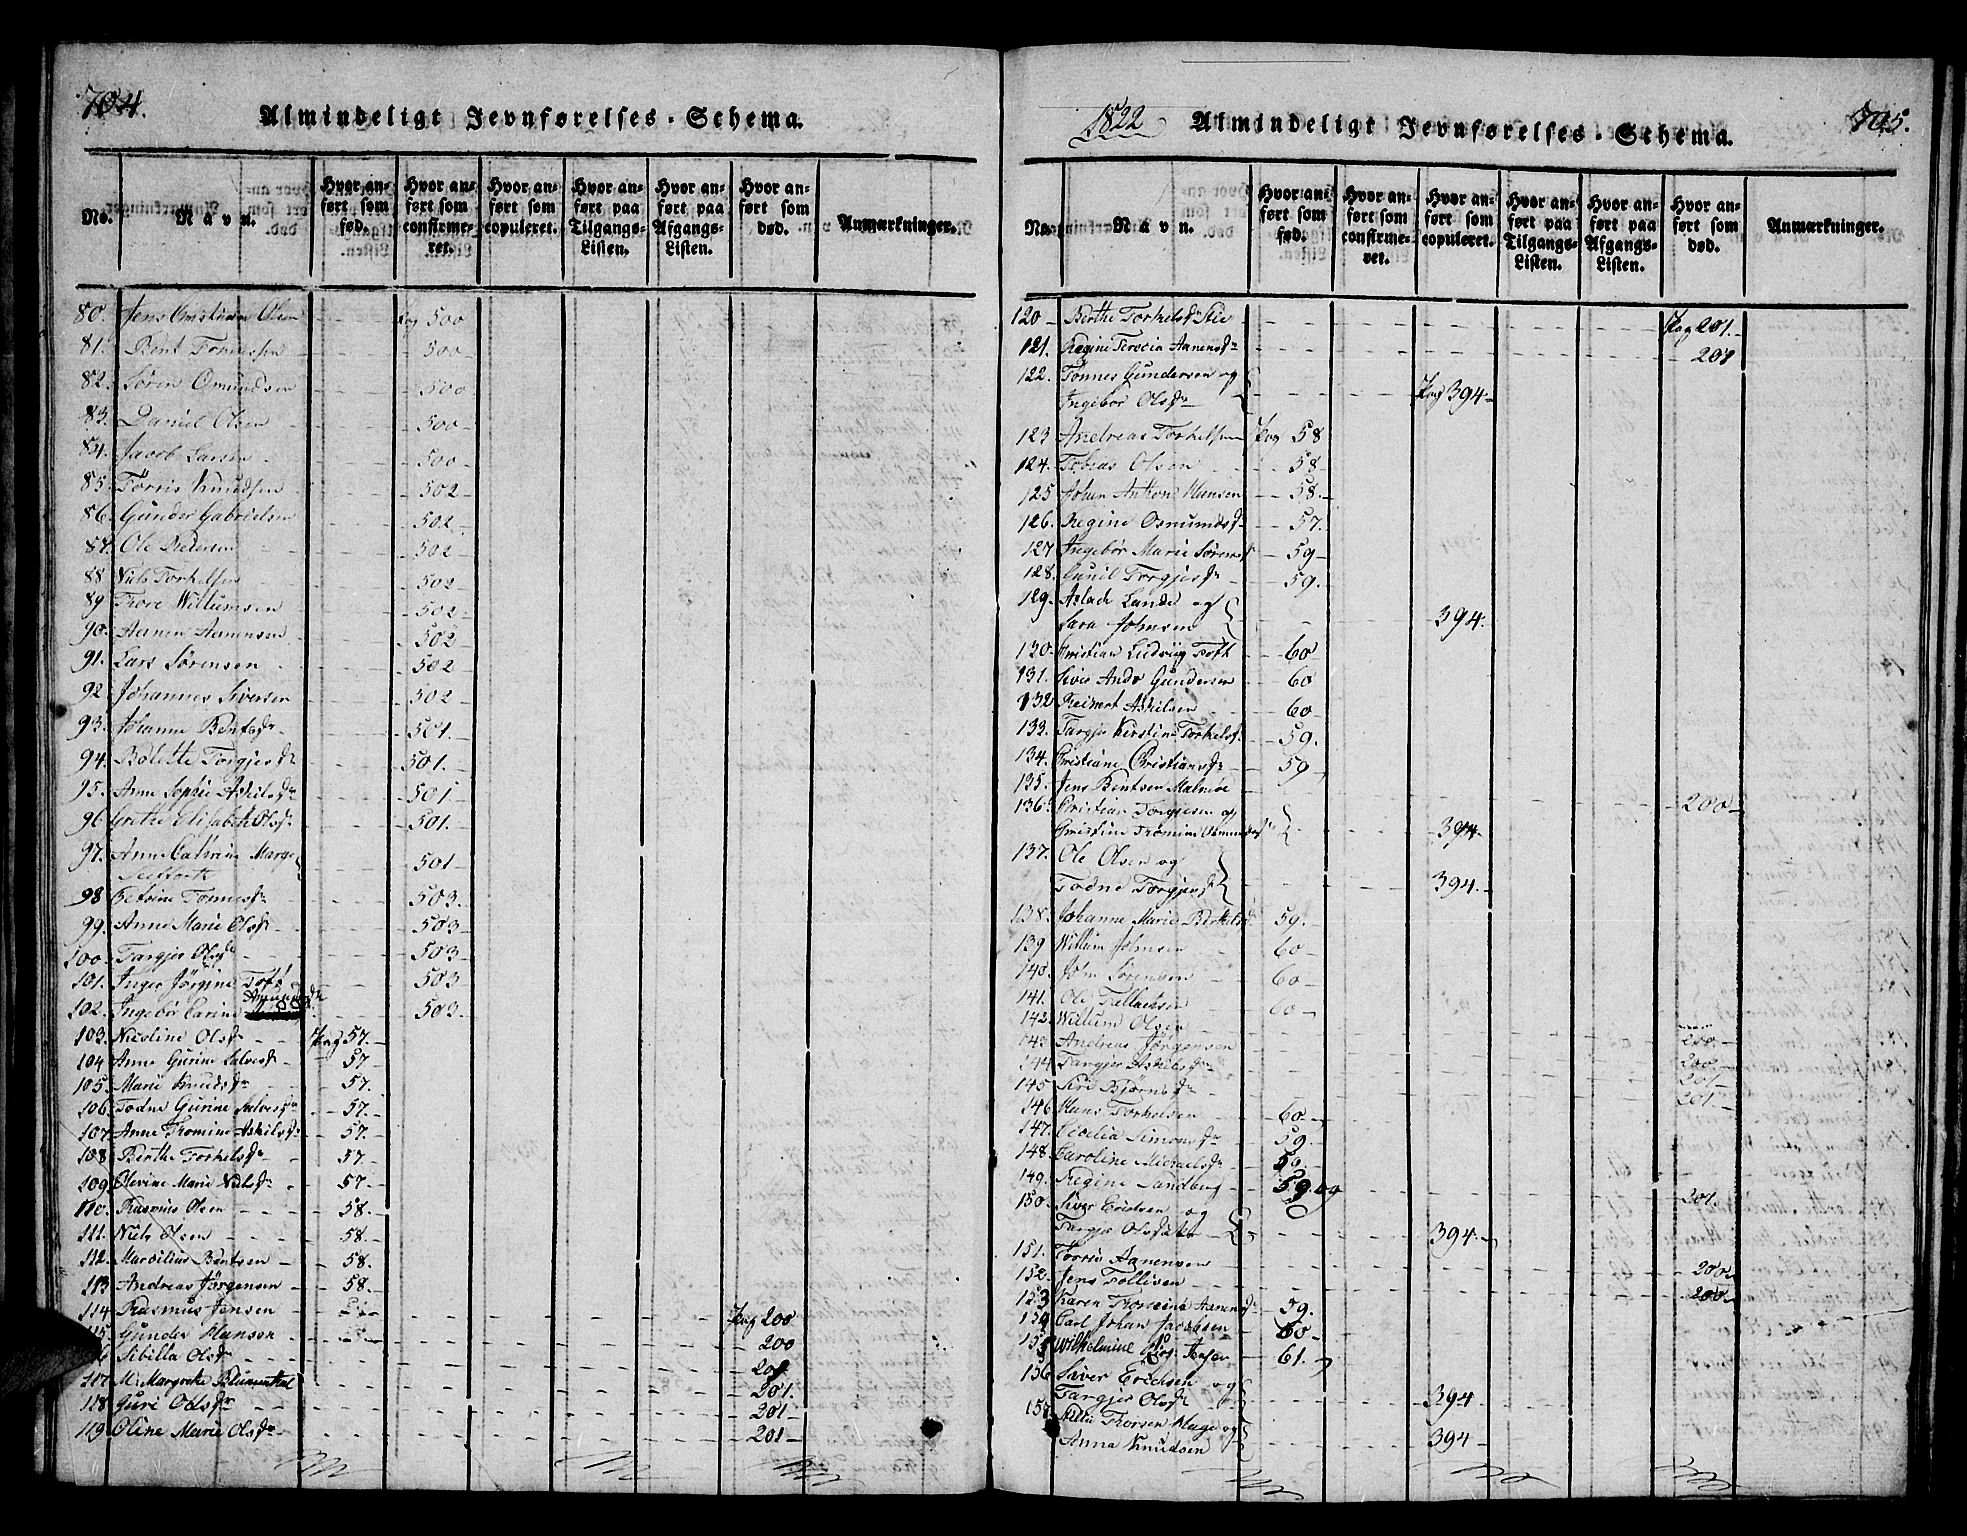 704.
Almindeligt Jevnførelses-Schema.
No.
Navn.
Hvor anført som fød.
Hvor anført som confirmeret.
Hvor anført som copuleret.
Hvor anført paa Tilgangs-Listen.
Hvor anført paa Afgangs-Listen.
Hvor anført som død.
Anmærkninger.
80. Jens Christian Olsen Pag 500
81. Bent Tønnessen 500
82. Søren Omundsen 500
83. Daniel Olsen 500
84. Jacob Larsen 500
85. Tørris Knudsen 502
86. Gunder Gabrielsen 502
87. Ole Pedersen 502
88 Niels Torkelsen 502
89 Tore Willumsen 502
90. Aanen Aanensen 502
91. Lars Sørensen 502
92 Johannes Siversen 502
93. Johanne Bentsdr 501.
94. Bolette Torgjersdr 501.
95. Anne Sophie Askilsdr 501
96 Grethe Elisabeth Olsdr 501.
97. Anne Cathrine Margr 501
98 Petrine Tønnesdr 503.
99. Anne Marie Olsdr 503
100. Targjer Olsdr 503
101. Inger Jørgine Toft 503
102. Ingebor Carine Amundsdr 503
103. Nicoline Olsdr Pag 57.
104 Anne Gurine Salvesdr 57
105. Marie Knudsdr 57.
106. Todne Gurine Salvesdr 57.
107. Anne Tromine Askilsdr 57.
108 Berthe Torkelsdr 57.
109. Olevine Marie Nielsdr 57.
110. Rasmus Olsen 58.
111. Niels Olsen 58.
112. Marcilius Bentsen 58.
113 Andreas Jørgensen 58.
114 Rasmus Jensen Pag 200
115. Gunder Hansen 200
Sibilla Olsdr 201
117 M: Margrethe Blumenthal 201.
118. Guri Olsdr 201
119. Oline Marie Olsdr 201
1822
Almindeligt Jevnførelses-Schema.
705.
No.
Navn.
Hvor anført som fød.
Hvor anført som confirmeret.
Hvor anført som copuleret.
Hvor anført paa Tilgangs-Listen.
Hvor anført paa Afgangs-Listen.
Hvor anført som død.
Anmærkninger.
120 Berthe Torkelsdr Stie Pag 201.
121. Regine Terecia Aanensdr 201
122. Tønnes Gundersen og
Ingebor Olsdr Pag 394
123 Andreas Torkelsen Pag 58
124. Tobias Olsen 58
125 Johan Anton Hansen 58.
126. Regine Osmundsdr 57.
127 Ingebor Marie Sørensdr 59
128. Gunil Torgjersdr 59.
129. Aslach Lande og
Sara Johnsen 394.
130. Christian Ludvig Toft 60
131. Siver Andr Gundersen 60
132 Reinert Askilsen 60
133. Targjer Kirstine Torkelsdr 59.
134. Christiane Christiansdr 59
135. Jens Bentsen Malmøe 200
136. Christian Torgjersen og
Christine Tromine Osmundsdr 394
137. Ole Olsen og
Todne Torgjersdr 394.
138. Johanne Marie Berthelsdr 59.
139 Willum Johnsen 60
140. John Sørensen 60
141. Ole Tellachsen 60
142. Willum Olsen 200
143 Andreas Jørgensen 200
144 Targjer Askilsdr 201
145 Siri Bjørnsdr 201.
146 Hans Torkelsen 60
147. Cicelia Simonsdr 59.
148. Caroline Michaelsdr 59
149. Regine Sandberg 59 201.
150. Siver Erichsen og
Targjer Olsdatter 394.
151. Tørris Aanensen 200
152. Jens Tollisen 200
153 Karen Tromine Aanensdr 59.
154 Carl Johan Jacobsen 60
155 Wilhelmine Jensen 61.
156 Siver Erichsen og
Targjer Olsdr 394
157. Thorsen Hage og
Anna Knudsen 394